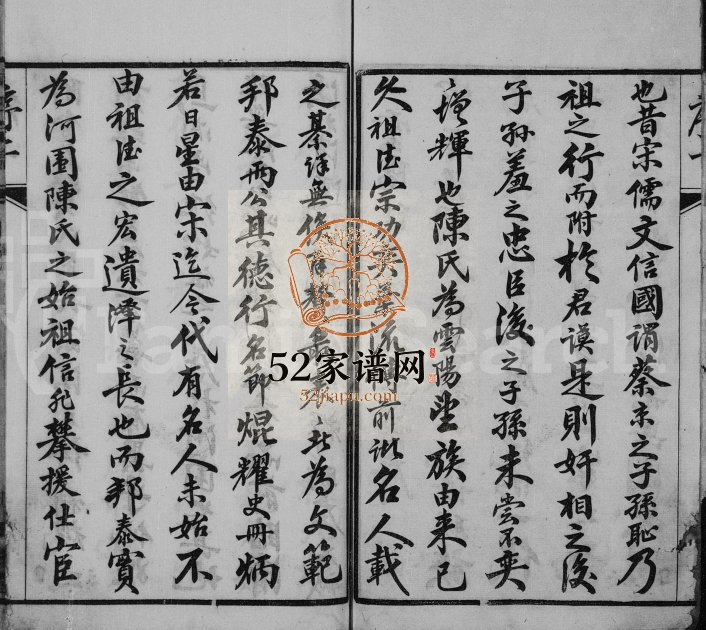 也昔宋儒文信國謂蔡京之子孫恥乃
祖之行而附於君謨是則奸相之後
子孫羞之忠臣後之子孫未嘗不奕
增輝也陳氏為雲陽望族由來已
久祖德宗功奕 流 前訛名人載
之綦詳無俟 為文範
邦泰兩公其德行名節焜耀史冊炳
若日星由宋迄今代有名人未始不
由祖德之宏遺澤之長也而邦泰實
為河圍陳氏之始祖信非攀援仕宦
序
52家谱网
52jiapu.com
FamilySearch